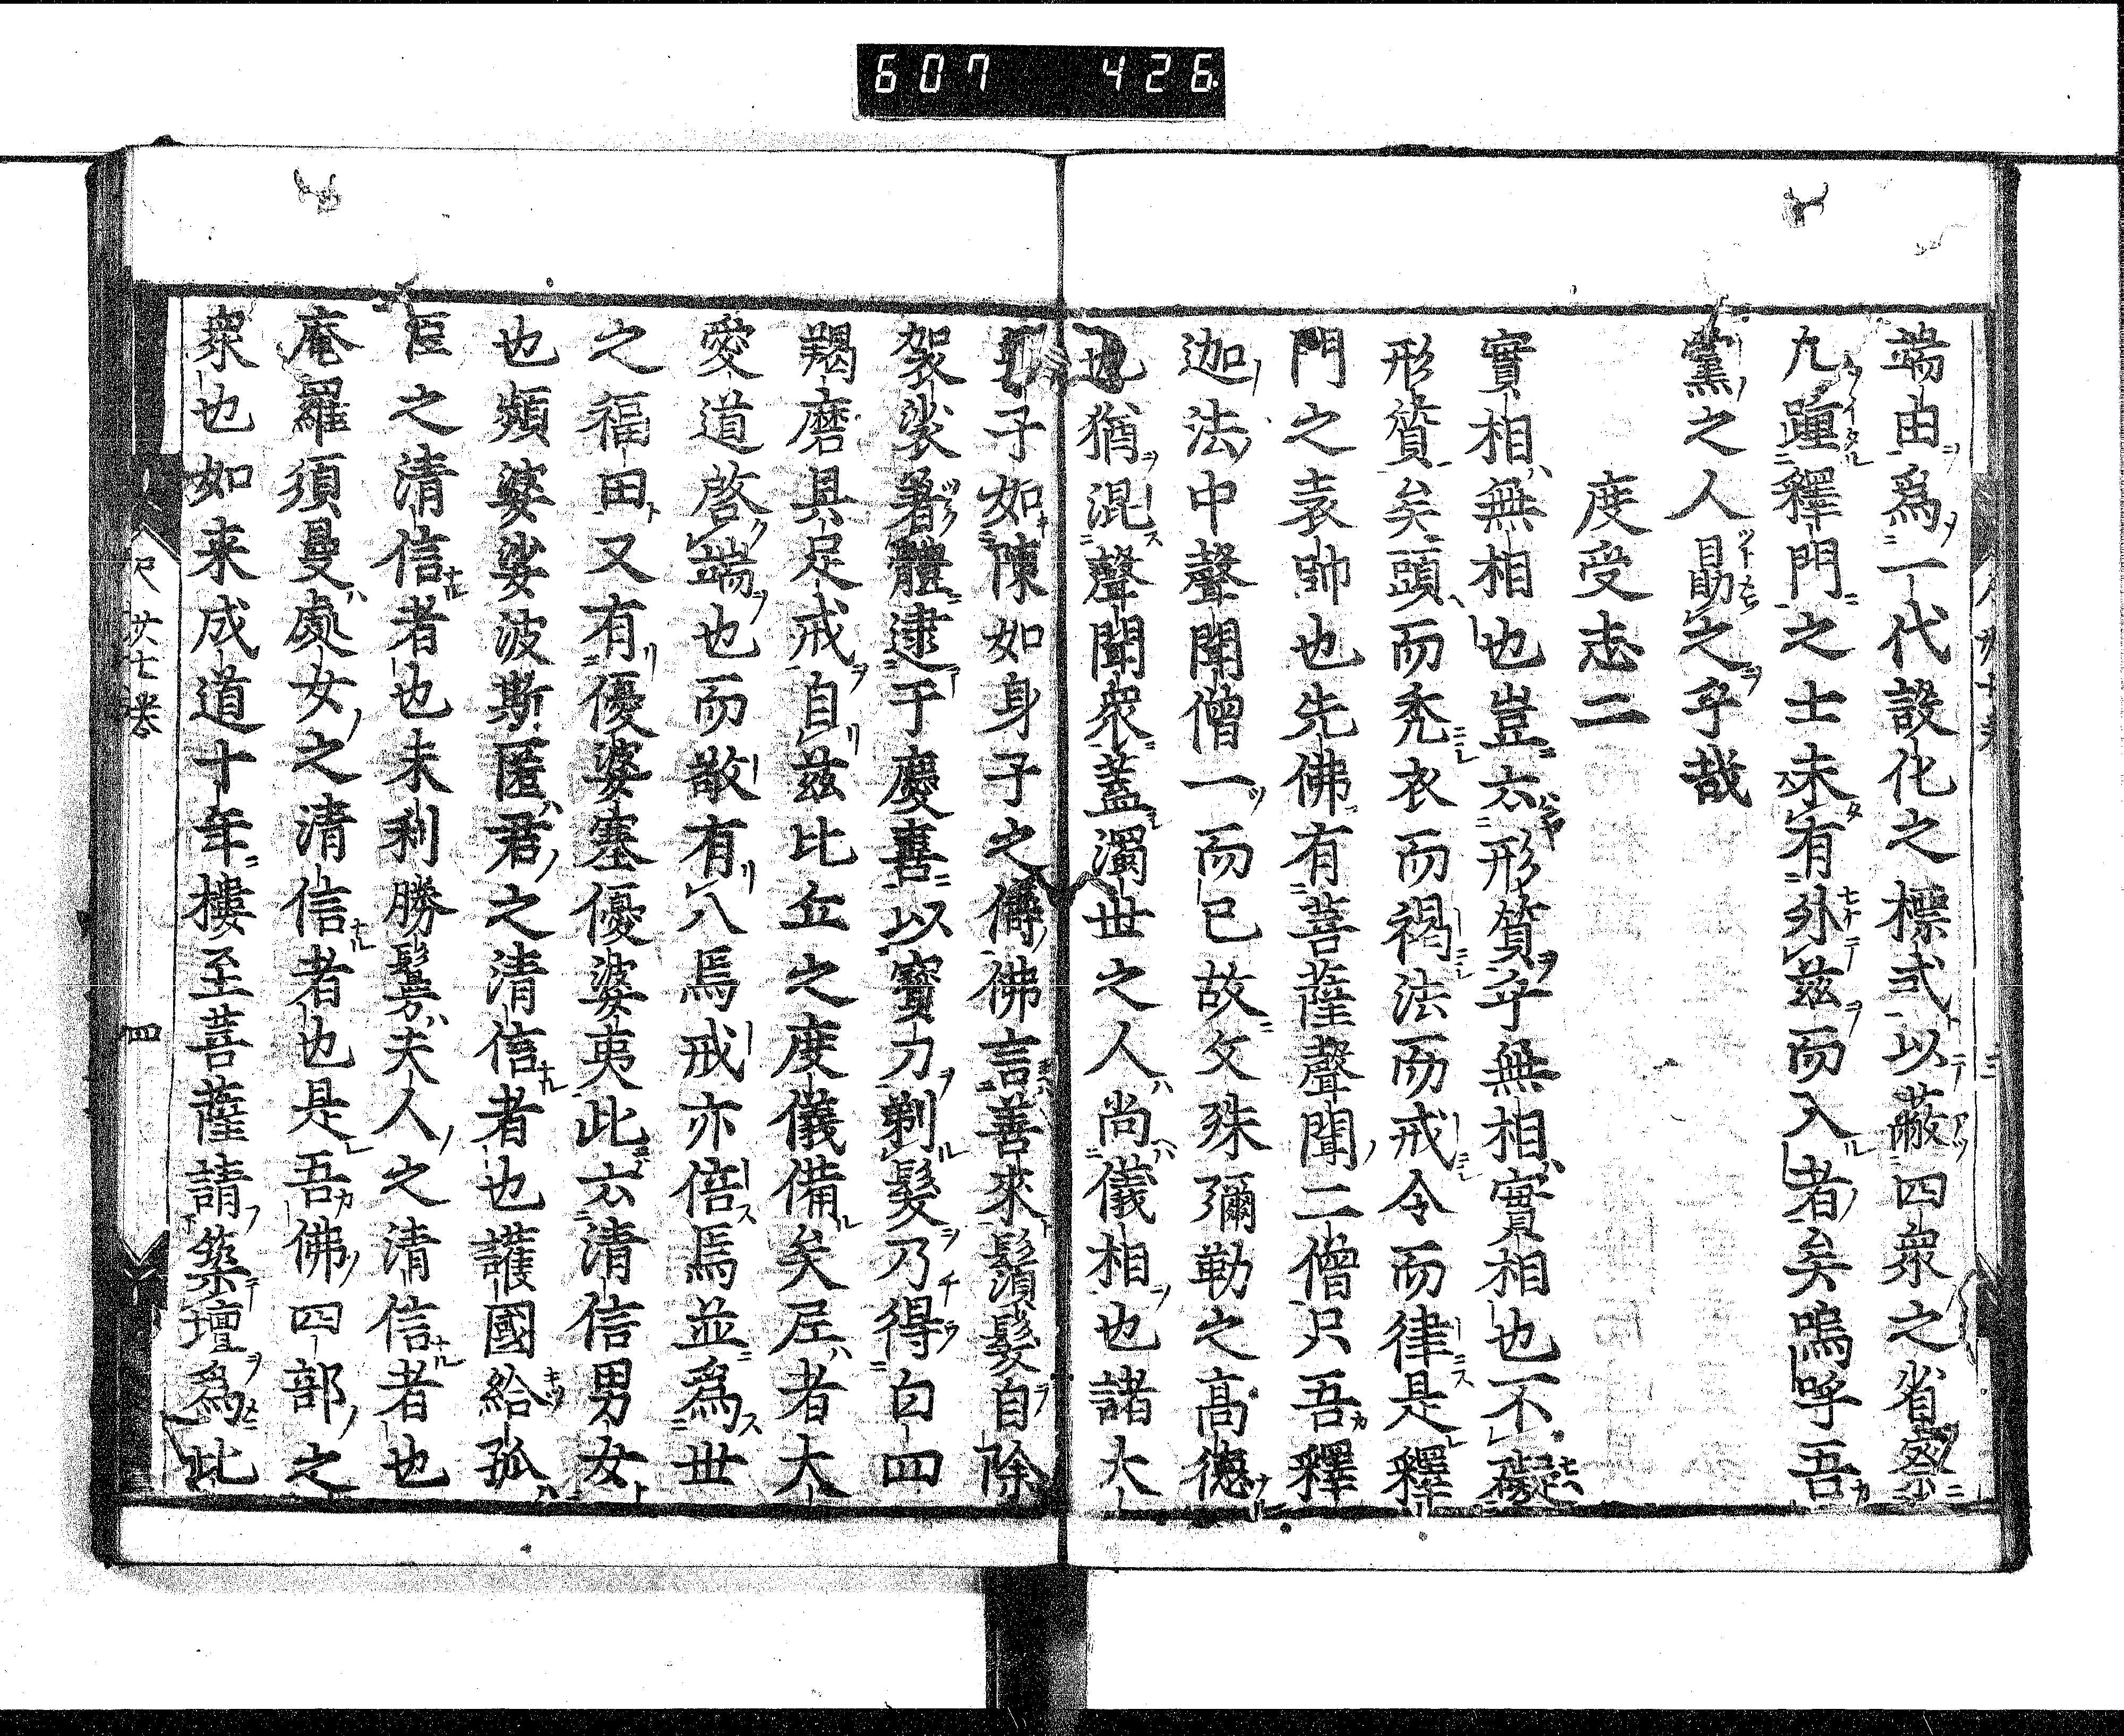 607 426
端由爲一代設化之標式以蔽四衆之省察
凡踵釋門之士未有外茲而入者矣嗚呼吾
黨之人勗之乎哉
度受志二
實相無相也豈云形質乎無相實相也不礙
形質矣頭而禿衣而褐法而戒令而律是釋
門之表帥也先佛有菩薩聲聞二僧只吾釋
迦法中聲聞僧一而已故文殊彌勒之高德
也猶混聲聞衆蓋濁世之人尚儀相也諸大
子如陳如身子之儔佛言善來鬚髮自除
袈裟著體逮于慶喜以寶刀剃髮乃得白四
羯磨具足戒自茲比丘之度儀備矣尼者大
愛道啓端也而敬有八焉戒亦倍焉並爲世
之福田又有優婆塞優婆夷此云清信男女
也頻婆娑波斯匿君之清信者也護國給孤
臣之清信者也末利勝鬘夫人之清信者也
庵羅須曼處女之清信者也是吾佛四部之
衆也如来成道十年樓至菩薩請築壇爲此
廿七卷
四